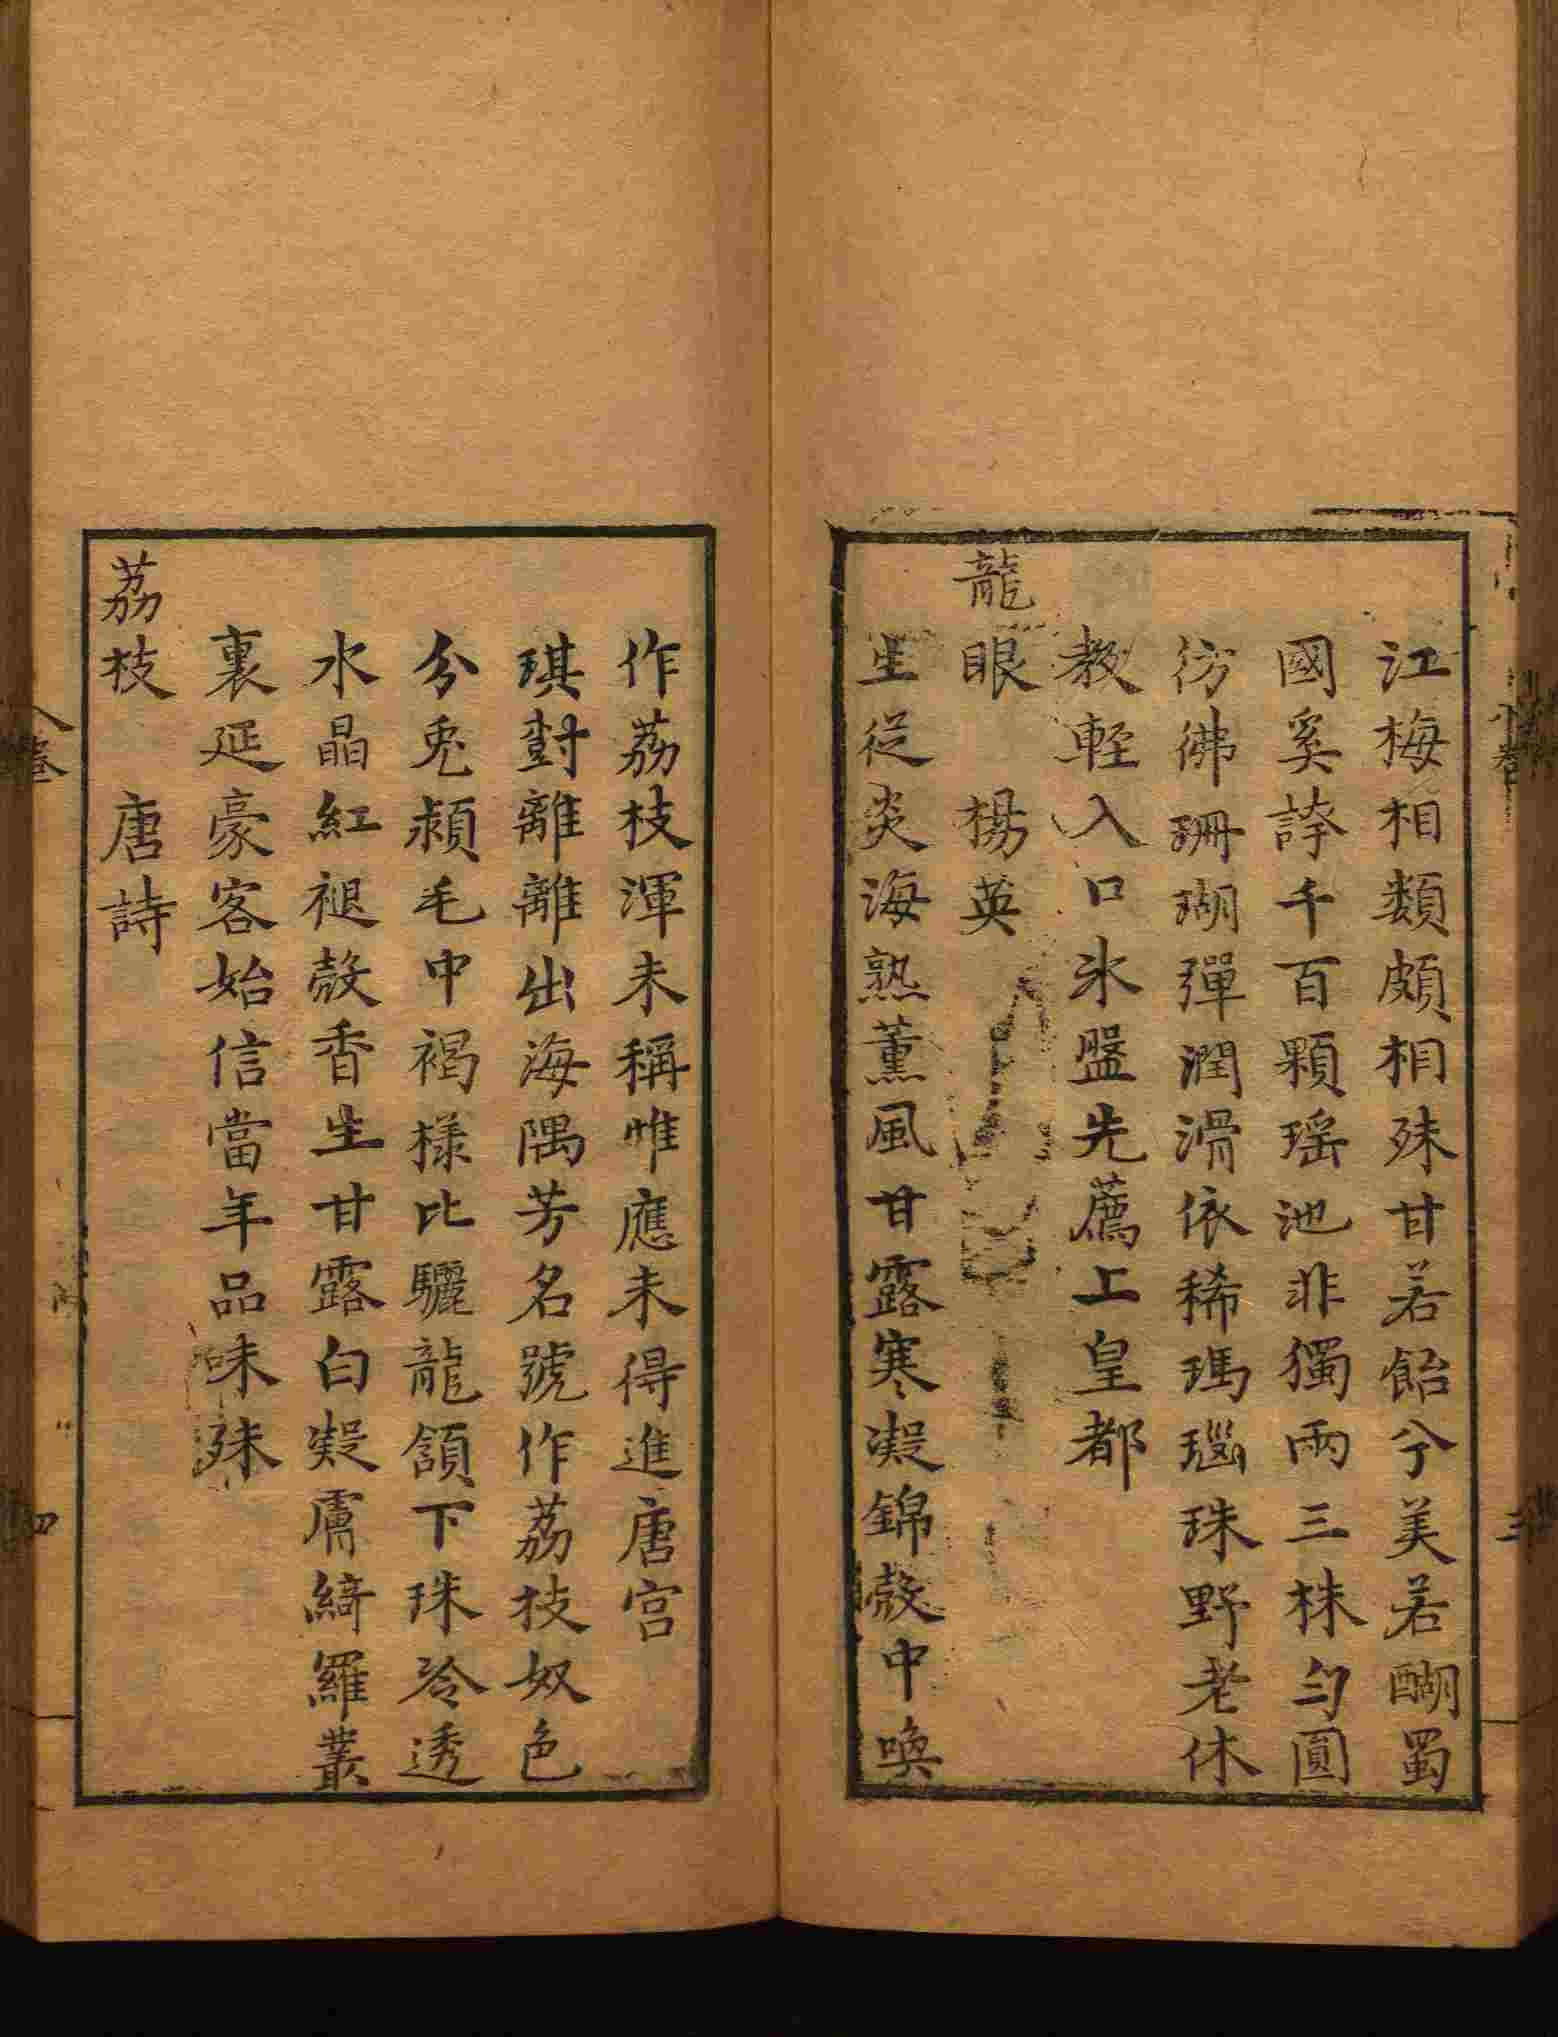 江梅相類頗相殊甘若飴兮美若醐蜀
國奚誇千百顆瑶池非獨兩三株勻圓
彷彿珊瑚彈潤滑依稀瑪瑙珠野老休
教輕入口氷盤先薦上皇都
龍眼　楊英
生從炎海熟薰風甘露寒凝錦殼中喚
作荔枝渾未稱惟應未得進唐宮
琪對離離出海隅芳名號作荔枝奴色
分兎頰毛中褐樣比驪龍頷下珠冷透
水晶紅褪殼香生甘露白凝膚綺羅叢
裏延豪客始信當年品味殊
荔枝　唐詩